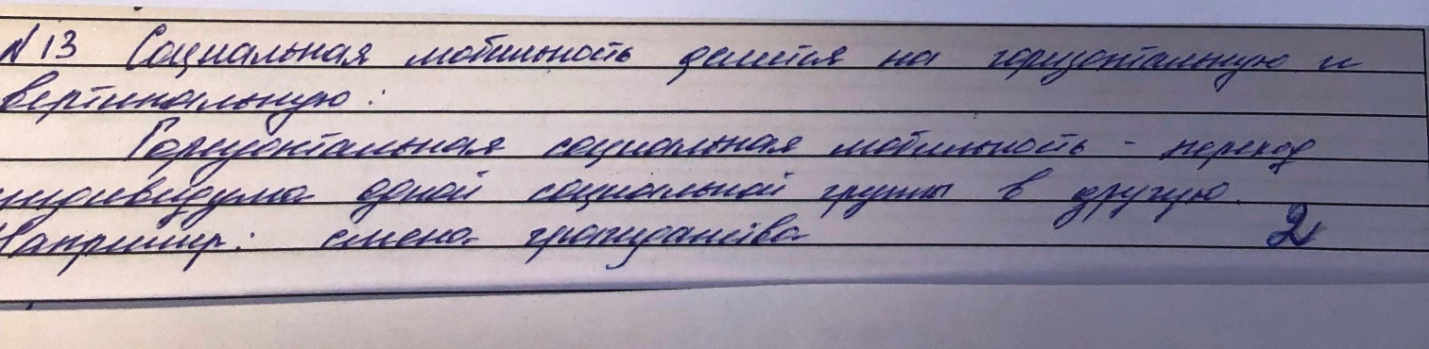 №13 Социальная мобильность делится на горизонтальную и
вертикальную:
Горизонтальная социальная мобильность - переход
индивидума одной социальной группы в другую.
Например: смена гражданства 2